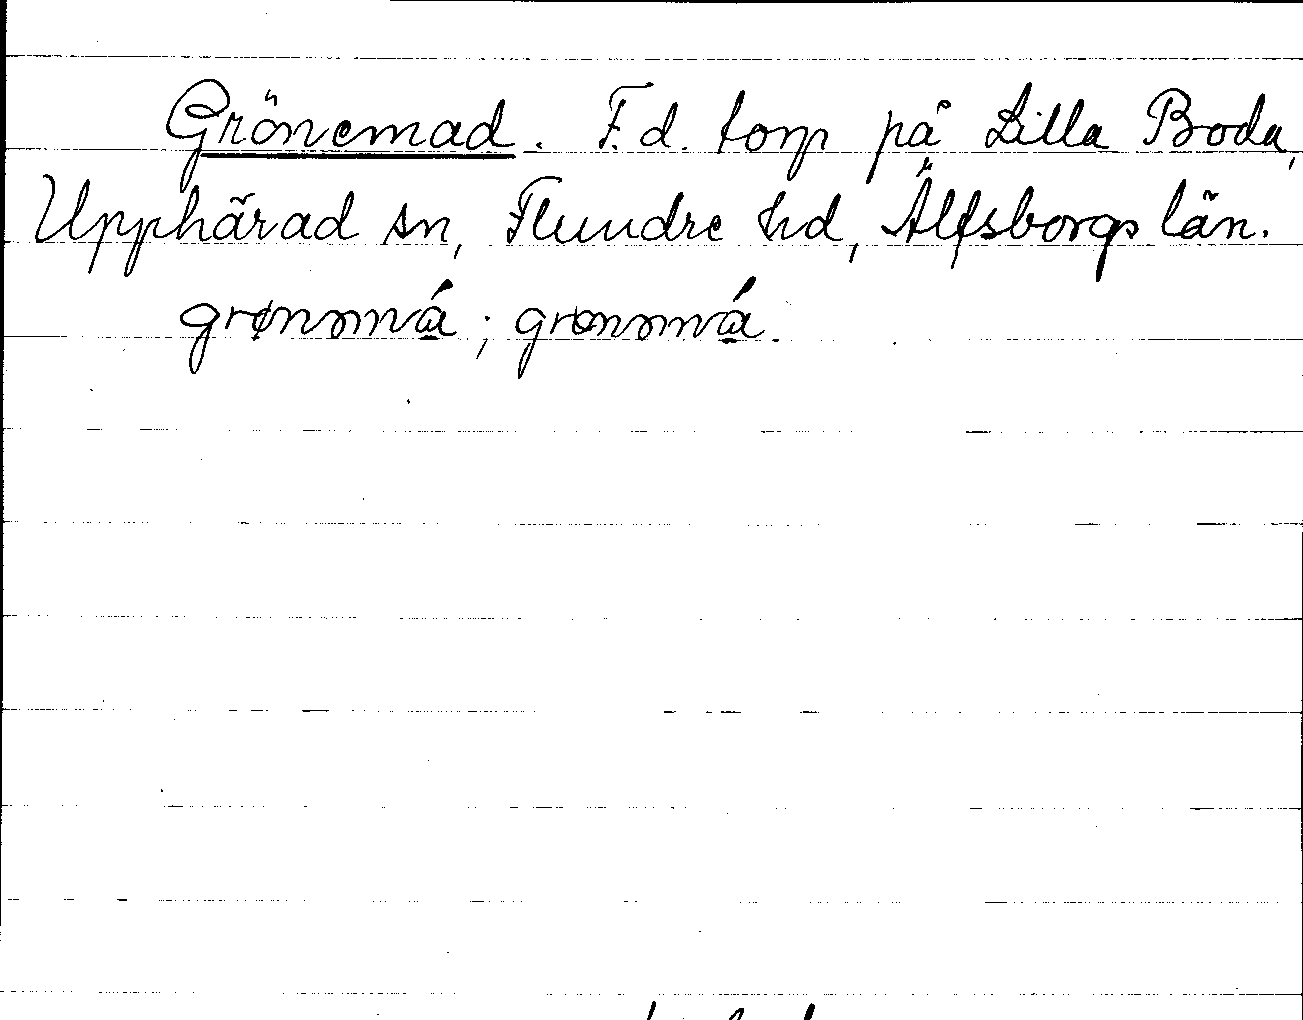 Grönemad. F.d. torp på Lilla Boda,
Upphärad sn, Flundre hd, Älfsborgs län.